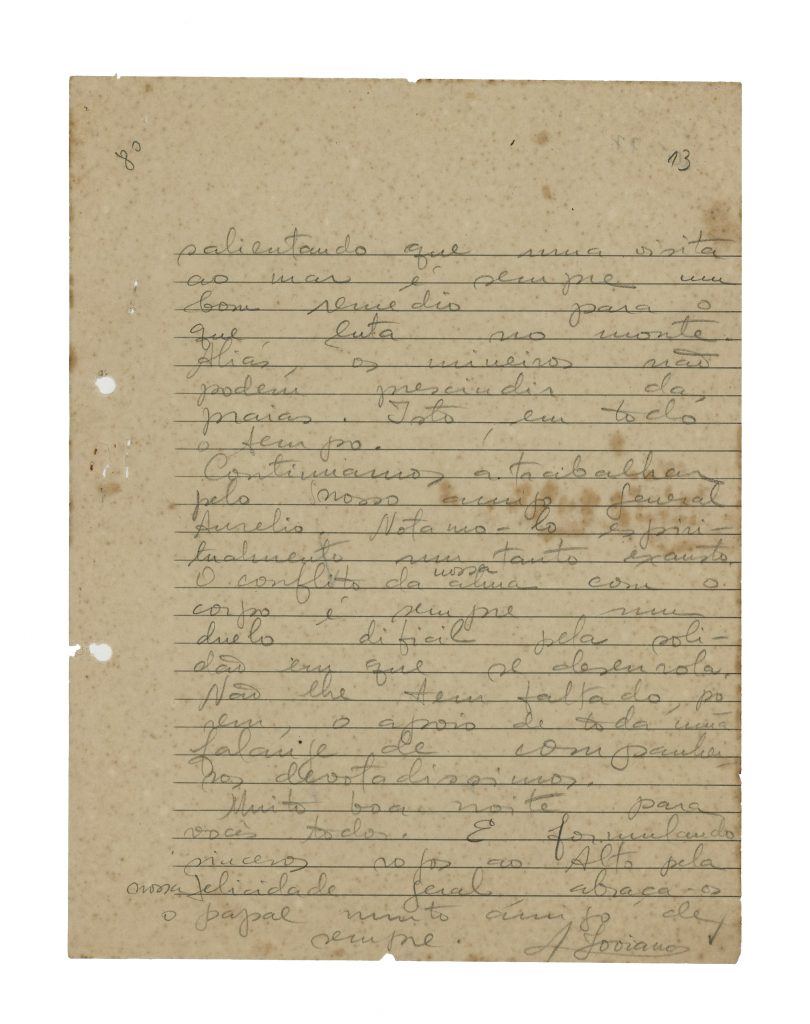 8º
13
salientando que uma visita
ao mar é sempre um
bom remedio para o
que luta no monte.
Aliás, os mineiros não
podem prescindir da
praias. Isto em todo
o tempo.
Continuamos a trabalhar
pelo nosso amigo general
Aurelio. Notamo-lo espiri-
tualmente um tanto exausto.
O conflito da nossa alma com o
corpo é sempre um
duelo dificil pela soli-
dão em que se desenrola.
Não lhe tem faltado, po
rem, o apoio de toda uma
falange de companhei-
ros devotadissimos.
Muito boa noite para
vocês todos. E formulando
sinceros rogos ao Alto pela
nossa felicidade geral, abraça-os
o papae muito amigo de
sempre. A Joviano